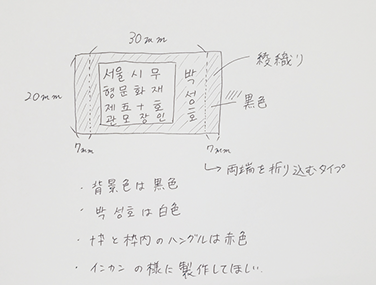 30mm
20mm
서울시무
형문화재
제五十호
관모장인
박성호
綾織り
黒色
7mm
7mm
両端を折り込むタイプ
・背景色は黒色
・박성호は白色
・枠と枠内のハングルは赤色
・インカンの様に製作してほしい